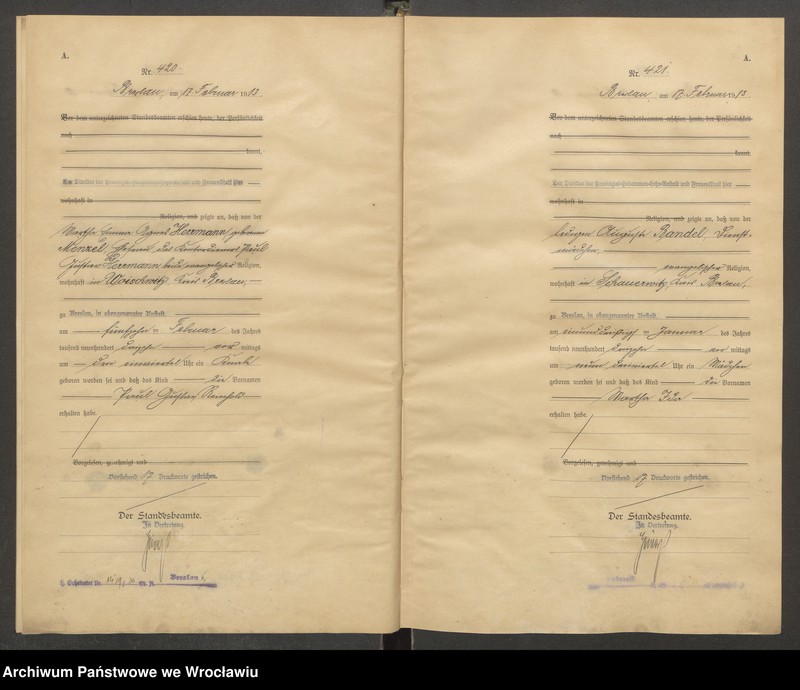 A.
Nr. 420.
Breslau, am 17. Februar 1913.
Vor dem unterzeichneten Standesbeamten erschien heute, der Persönlichkeit
nach
kannt,
Der Direktor der Provinzial-Hebammen-Lehr-Anstalt und Frauenklinik hier
wohnhaft in
Religion, und zeigte an, daß von der
Martha Emma Agnes Herrmann, geborene
Menzel, Ehefrau des Paul
Gustav Herrmann, beide evangelischer Religion,
wohnhaft in Kreis Breslau,
zu Breslau, in obengenannter Anstalt
am fünfzehnten Februar des Jahres
tausend neunhundert dreizehn vor mittags
um drei einviertel Uhr ein Knabe
geboren worden sei und daß das Kind die Vornamen
Paul Gustav Reinhold
erhalten habe.
Vorgelesen, genehmigt und
Vorstehend 17 Druckworte gestrichen.
Der Standesbeamte.
In Vertretung.
Breslau
A.
Nr. 421.
Breslau, am 17. Februar 1913.
Vor dem unterzeichneten Standesbeamten erschien heute, der Persönlichkeit
nach
kannt,
Der Direktor der Provinzial-Hebammen-Lehr-Anstalt und Frauenklinik hier
wohnhaft in
Religion, und zeigte an, daß von der
ledigen Auguste Bandel, Dienst-
mädchen,
evangelischer Religion,
wohnhaft in Schauerwitz, Kreis Breslau,
zu Breslau, in obengenannter Anstalt
am einunddreißigsten Januar des Jahres
tausend neunhundert dreizehn vor mittags
um neun dreiviertel Uhr ein Mädchen
geboren worden sei und daß das Kind die Vornamen
Martha Ida
erhalten habe.
Vorgelesen, genehmigt und
Vorstehend 17 Druckworte gestrichen.
Der Standesbeamte.
In Vertretung.
Archiwum Państwowe we Wrocławiu